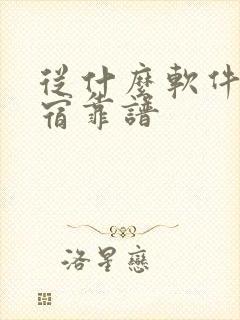 從什麼軟件
宿靠譜
洛星戀